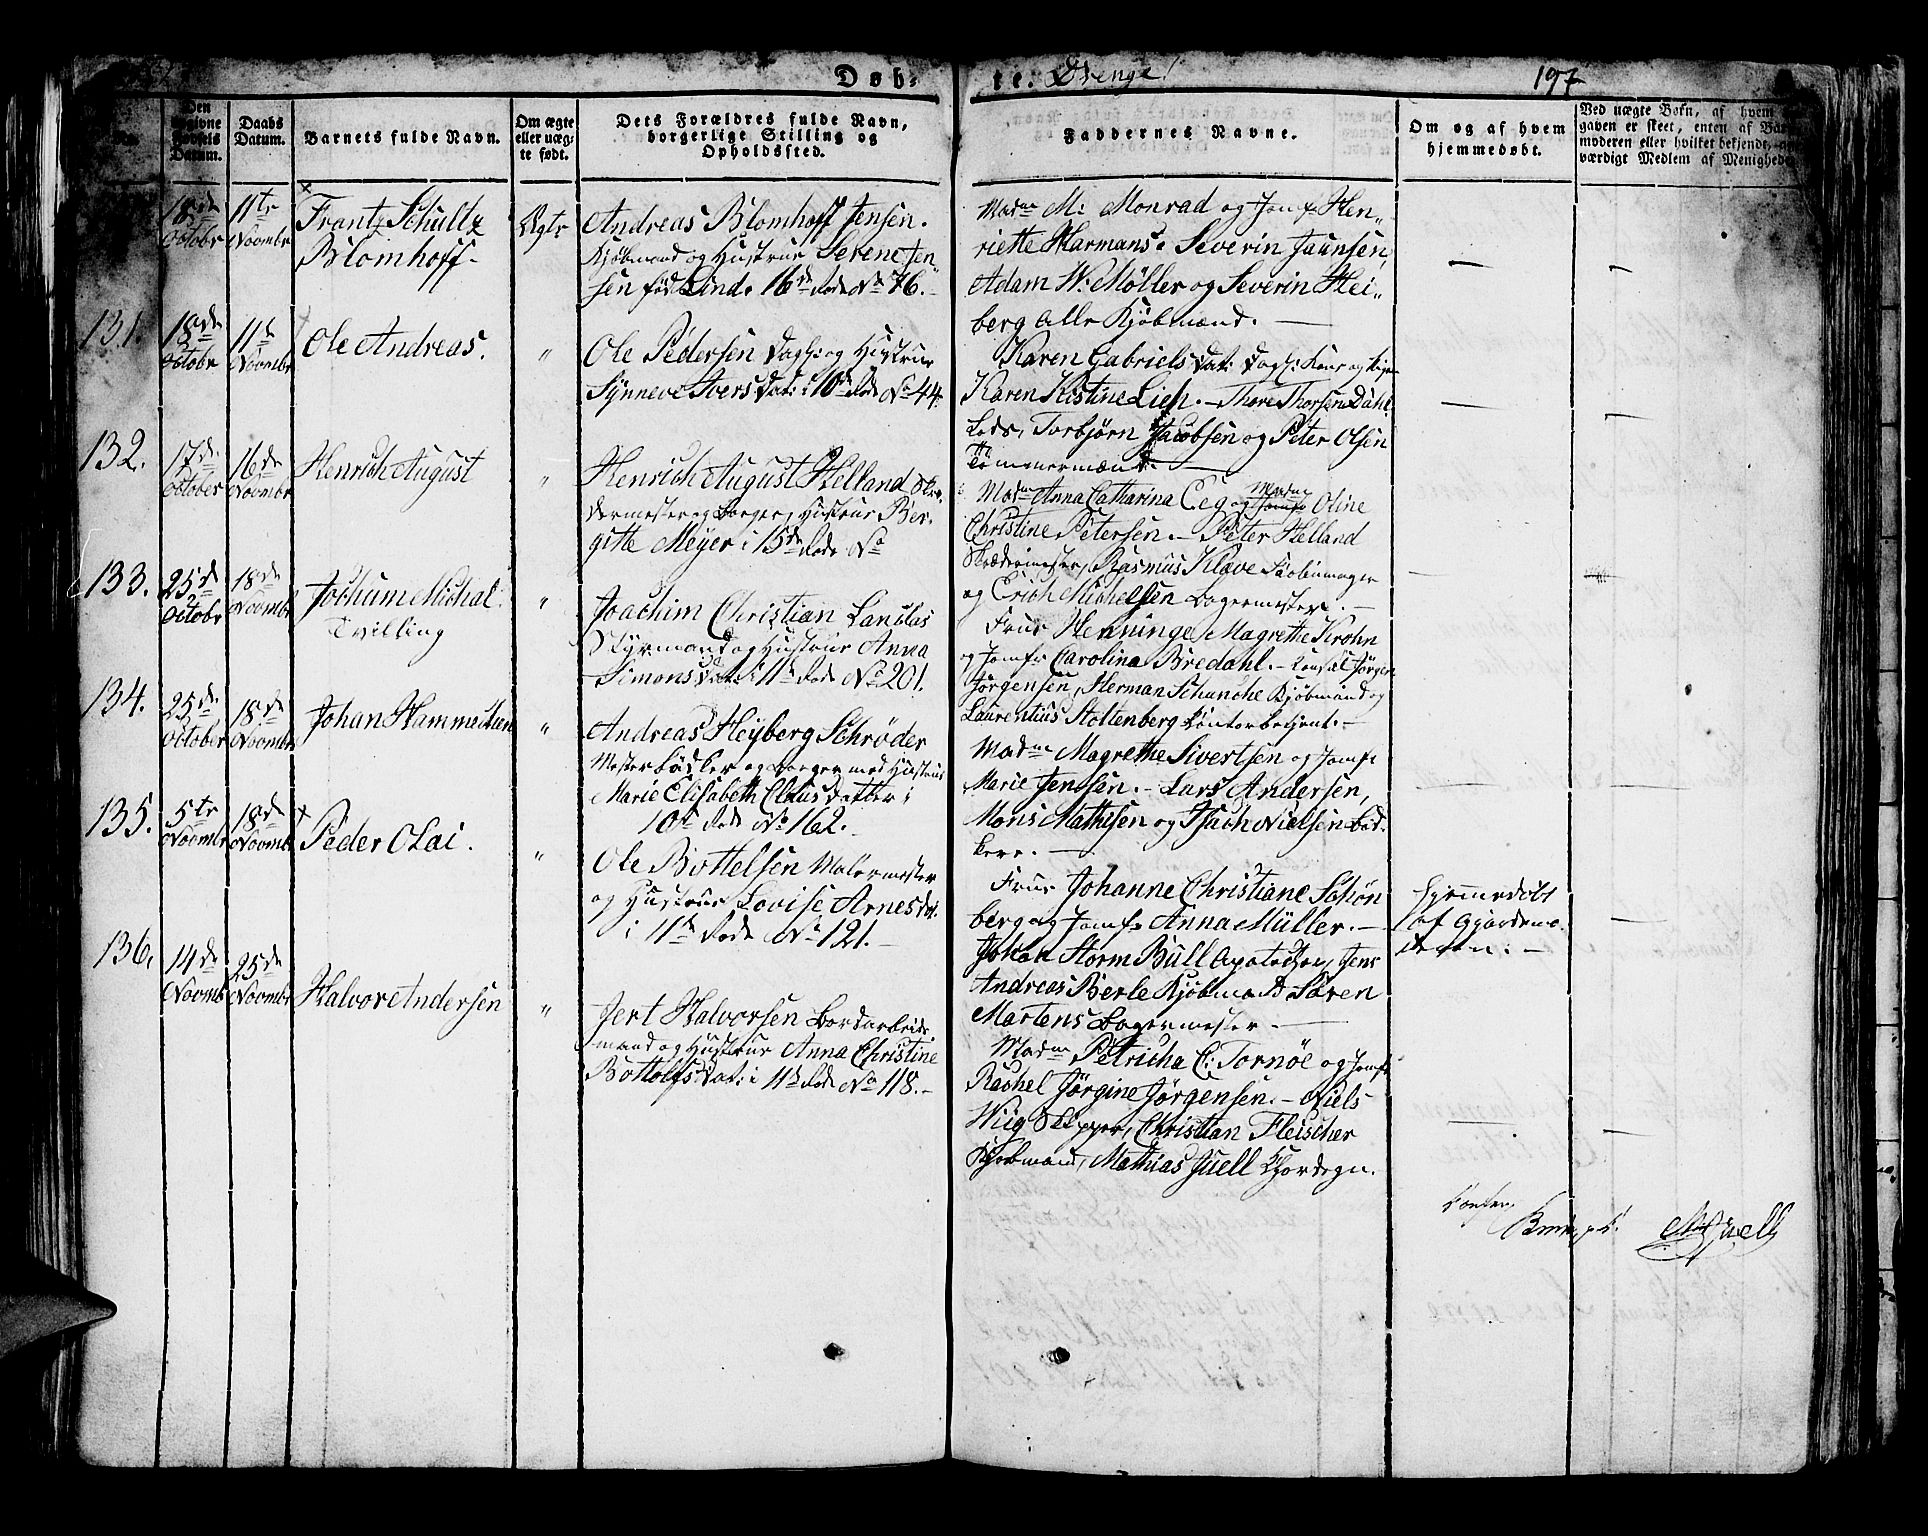 Døb-
te. Drenge!
197
Den
angivne
Fødsels
Datum.
Daabs
Datum.
Barnets fulde Navn.
Om ægte
eller uæg-
te født.
Dets Forældres fulde Navn,
borgerlige Stilling og
Opholdssted.
Faddernes Navne.
Om og af hvem
hjemmedøbt.
Ved uægte Børn, af hvem
gaven er skeet, enten af Bar
moderen eller hvilket bekjendt,
værdigt Medlem af Menighede
18de
October
11te
Novembr
Frantz Schultz
Blomhoff
Ægte
Andreas Blomhoff Jensen.
Kjøbmand og Hustrue Serene Jen-
sen fød Lind. 16de Rode No 76.
Madme M: Monrad og Jomfr Hen-
riette Harmans. Severin Jaunsen,
Adam W: Møller og Severin Hei-
berg alle Kjøbmænd. —
131.
18de
October
11te
Novembr
Ole Andreas.
"
Ole Pedersen Dagsk. og Hustrue
Synneve Ivers Dat: i 10de Rode No 44.
Karen Gabriels Dat: Dagsk: Kone og Pigen
Karen Kistine Lieh. — Thore Thorsen Dahl
Lods, Torbjørn Jacobsen og Peter Olsen
Tømmermænd. —
132.
17de
October
16de
Novembr
Henrich August
"
Henrich August Helland Skræ-
dermester og Borger, Hustrue Ber-
gitte Meyer i 15de Rode No
Madme Anna Catharina Eeg og Madme Oline
Christine Petersen. — Peter Helland
Skrædermester, Rasmus Klæve Skoemager
og Erich Michelsen Bagermester. —
133.
25de
October
18de
Novembr
Jochum Michal.
Tvilling
"
Joachim Christian Lanclas
Styrmand og Hustrue Anna
Simons Dat: i 11te Rode No 201.
Frue Henninge Magrethe Krohn
og Jomfr Carolina Bredahl. — Konsul Jørgen
Jørgensen, Herman Schanche Kjøbmand og
Laurentius Stoltenberg Kontorbetjent. —
134.
25de
October
18de
Novembr
Johan Hammechen
"
Andreas Heyberg Schrøder
Mester Bødker og Borger med Hustrue
Marie Elisabeth Clausdatter i
10de Rode No 162.
Madme Magrethe Sivertsen og Jomfr
Marie Jenssen. — Lars Andersen,
Mons Mathisen og Isach Nielsen Bød-
kere. —
135.
5te
Novembr
18de
Novembr
Peder Olai.
"
Ole Bottelsen Malermester
og Hustrue Lovise Arnes Dat.
i 11te Rode No 121. —
Frue Johanne Christiane Schøn
berg og Jomfr Anna Müller. —
Johan Storm Bull Apotecher, Jens
Andreas Berle Kjøbmand Søren
Martens Bagermester. —
Hjemmedøbt
af Gjordemo-
deren. —
136.
14de
Novembr
25de
Novembr
Halvor Andersen
"
Jert Halvorsen Bordarbeids
mand og Hustrue Anna Christine
Bottolfs Dat: i 11te Rode No 118. —
Madme Petricha C: Tornöe og Jomfr
Rachel Jørgine Jørgensen. — Niels
Wiig Skipper, Christian Fleischer
Kjøbmand, Mathias Juell Chordegn.
Juell